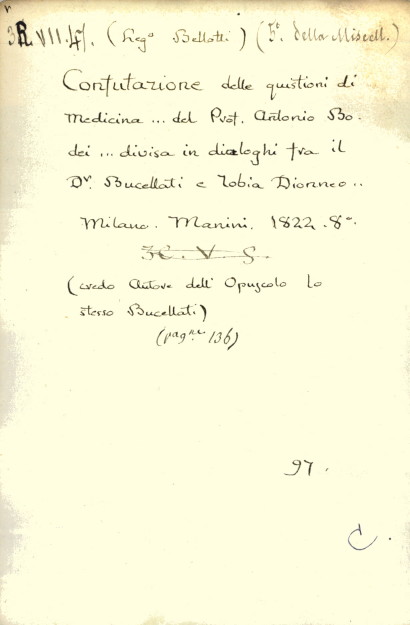 3R.VII.47. (Leg° Bellotti) (5°. della Miscell.)
Confutazione delle quistioni di
Medicina ... del Prof. Antonio Bo-
dei ... divisa in dialoghi fra il
Dr. Bucellati e Tobia Dionneo ..
Milano. Manini. 1822. 8°.
3C. V. G.
(credo Autore dell' Opuscolo lo
stesso Bucellati)
(pag.ne 136)
97.
C.